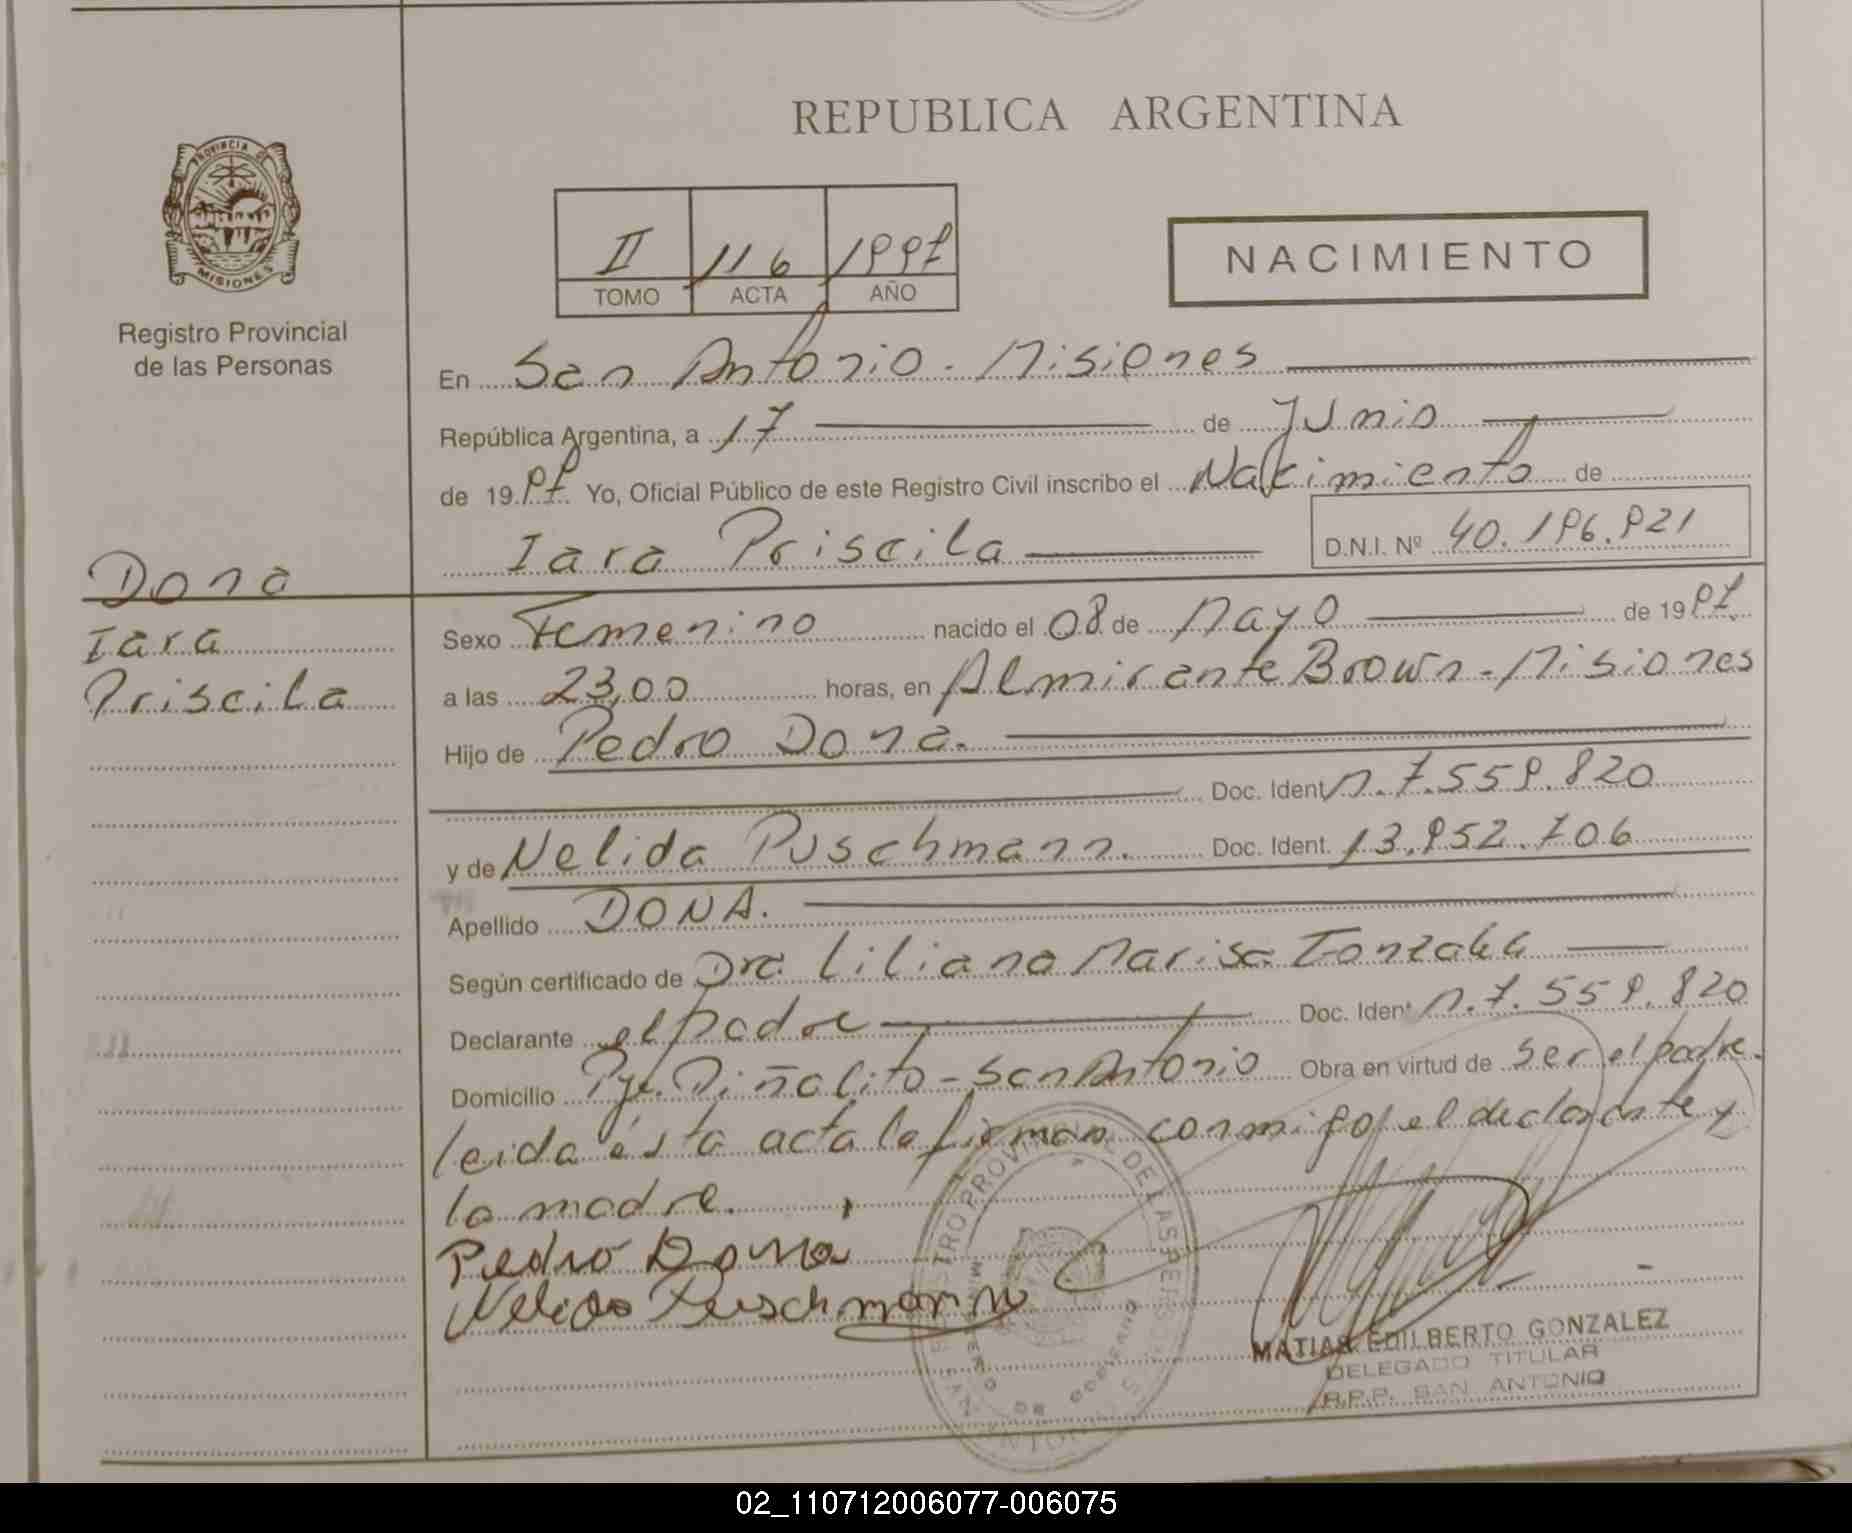 REPUBLICA ARGENTINA
PROVINCIA DE
MISIONES
Registro Provincial
de las Personas
II 116 1997
TOMO ACTA AÑO
NACIMIENTO
En San Antonio - Misiones
República Argentina, a 17 de Junio
de 1997 Yo, Oficial Público de este Registro Civil inscribo el Nacimiento de
Iara Priscila
D.N.I. Nº 40.196.921
Dona
Iara
Priscila
Sexo Femenino nacido el 08 de Mayo de 1997
a las 23,00 horas, en Almirante Brown - Misiones
Hijo de Pedro Dona.
Doc. Ident. M. 7.559.820
y de Nelida Puschmann. Doc. Ident. 13.952.706
Apellido DONA.
Según certificado de Dra. Liliana Marisa
Declarante el padre Doc. Ident M. 7.559.820
Domicilio Pje. Piñalito - San Antonio Obra en virtud de ser el padre.
leida ésta acta la firman conmigo, el declarante y
la madre.
Pedro Dona
Nelida Puschmann
REGISTRO PROVINCIAL DE LAS PERSONAS
MINISTERIO DE GOBIERNO
SAN ANTONIO
MATIAS EDILBERTO GONZALEZ
DELEGADO TITULAR
R.P.P. SAN ANTONIO
02_110712006077-006075